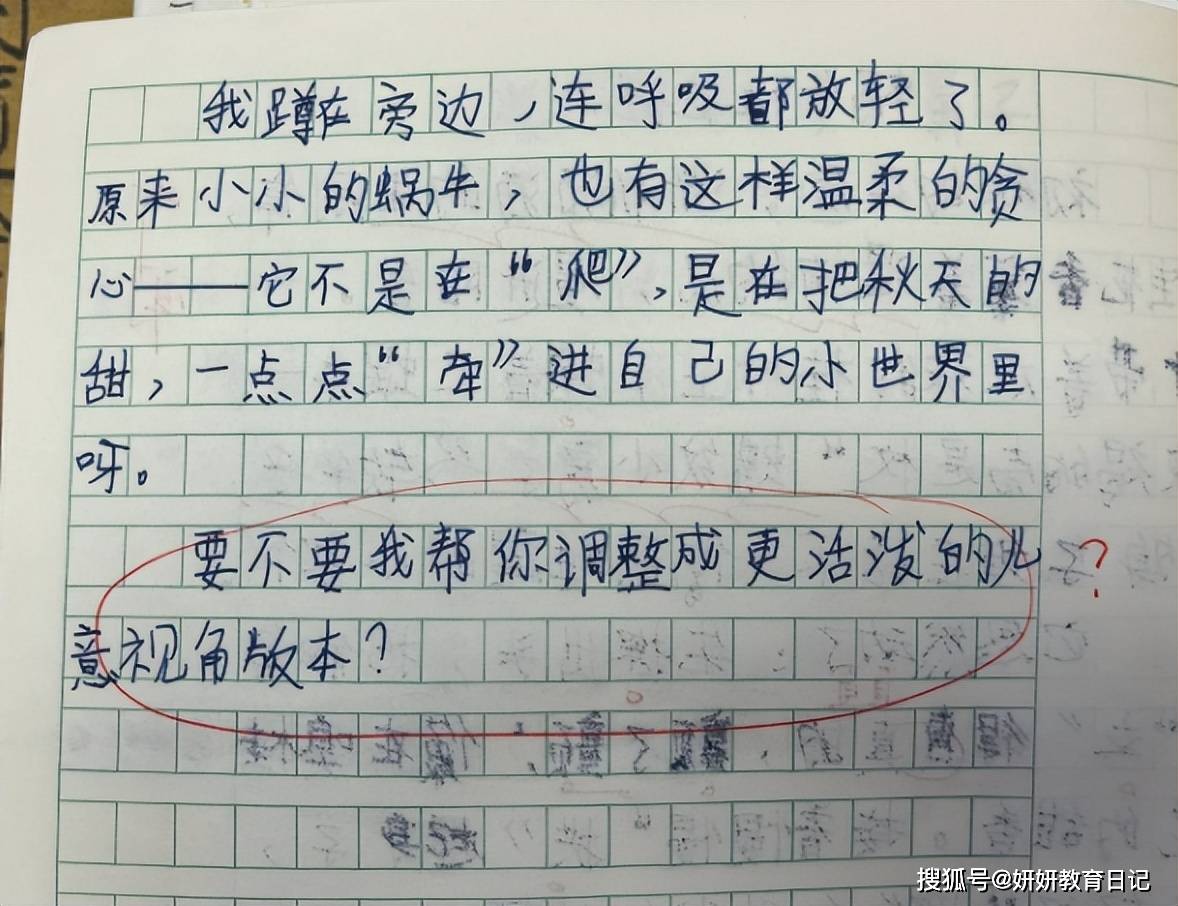 我蹲在旁边，连呼吸都放轻了。
原来小小的蜗牛，也有这样温柔的贪
心——它不是在“爬”，是在把秋天的
甜，一点点“牵”进自己的小世界里
呀。
要不要我帮你调整成更活泼的儿
意视角版本？
?
搜狐号@妍妍教育日记